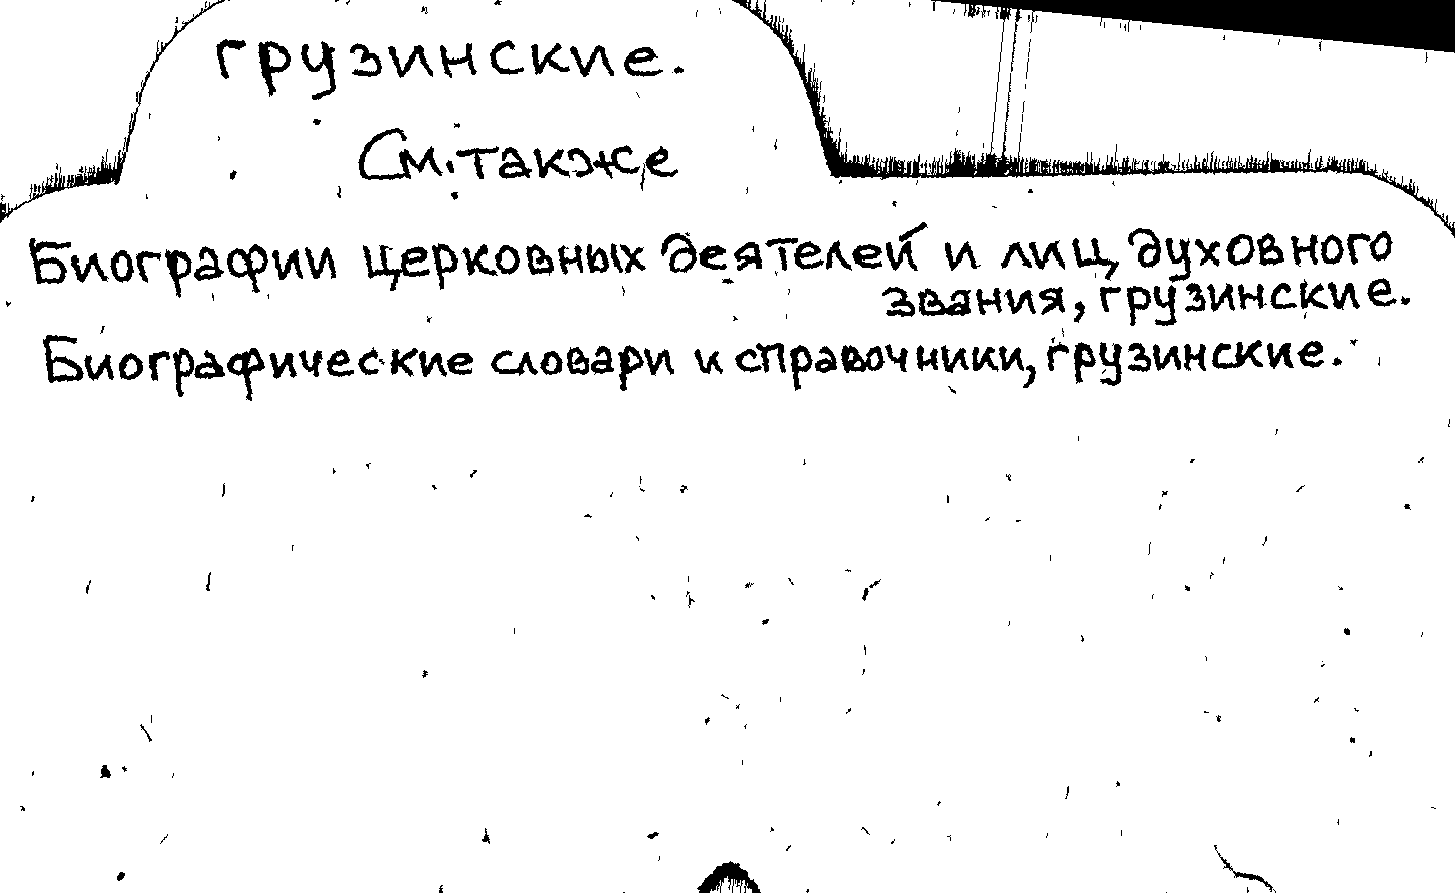 грузинские.
См. также
Биографии церковных деятелей и лиц духовного
звания, грузинские.
Биографические словари и справочники, грузинские.